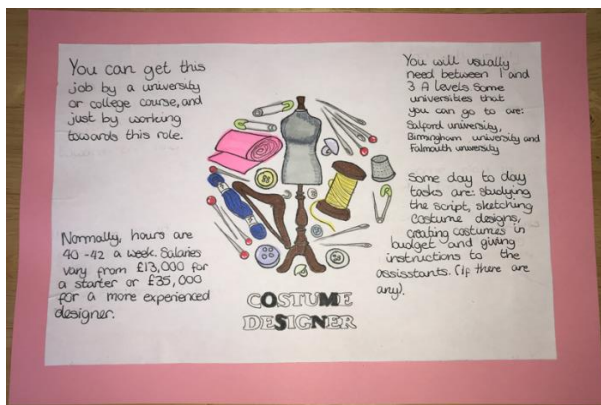 You can get this
job by a university
or college course, and
just by working
towards this role.
Normally, hours are
40-42 a week. Salaries
vary from £13,000 for
a starter or £35,000
for a more experienced
designer.
COSTUME
DESIGNER
You will usually
need between 1 and
3 A levels. Some
universities that
you can go to are:
Salford university,
Birmingham university and
Falmouth university
Some day to day
tasks are: studying
the script, sketching
costume designs,
creating costumes in
budget and giving
instructions to the
assisstants. (if there are
any).